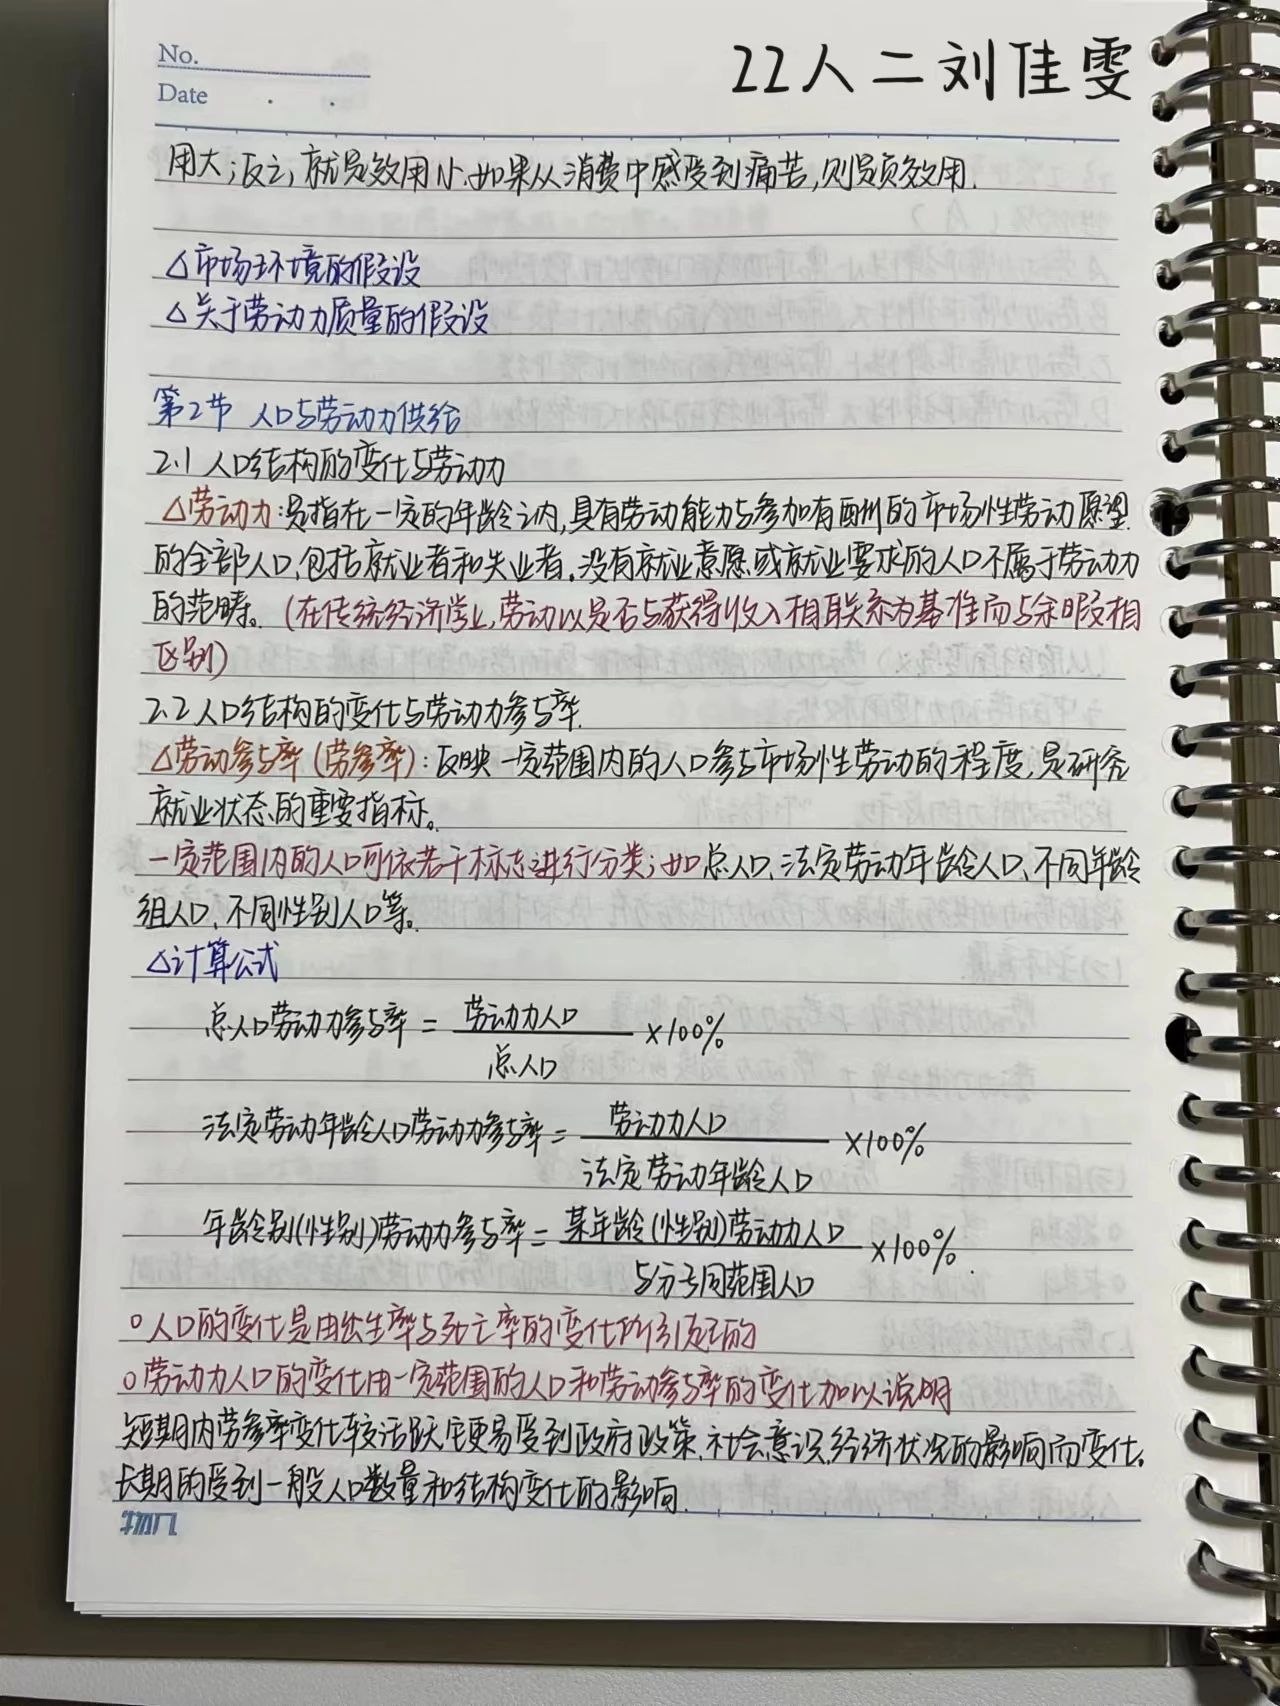 No.
22人二刘佳雯
Date
用大;反之,就是效用小.如果从消费中感受到痛苦,则是负效用.
△市场环境的假设
△关于劳动力质量的假设
第2节 人口与劳动力供给
2.1 人口结构的变化与劳动力
△劳动力:是指在一定的年龄之内,具有劳动能力与参加有酬的市场性劳动愿望
的全部人口,包括就业者和失业者。没有就业意愿或就业要求的人口不属于劳动力
的范畴。(在传统经济学上,劳动以是否与获得收入相联系为基准而与余暇相
区别)
2.2 人口结构的变化与劳动力参与率.
△劳动参与率(劳参率):反映一定范围内的人口参与市场性劳动的程度,是研究
就业状态的重要指标。
一定范围内的人口可依若干标志进行分类;如总人口、法定劳动年龄人口、不同年龄
组人口、不同性别人口等。
△计算公式
总人口劳动力参与率 = 劳动力人口 ×100%
总人口
法定劳动年龄人口劳动力参与率= 劳动力人口 ×100%
法定劳动年龄人口
年龄别(性别)劳动力参与率= 某年龄(性别)劳动力人口 ×100%.
与分子同范围人口
○人口的变化是由出生率与死亡率的变化所引起的
○劳动力人口的变化由一定范围的人口和劳动参与率的变化加以说明
短期内劳参率变化较活跃它更易受到政府政策、社会意识、经济状况的影响而变化。
长期的受到一般人口数量和结构变化的影响.